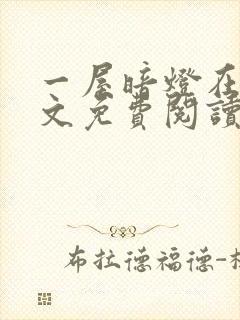 一屋暗燈在
文免費閱讀
布拉德福德-杉